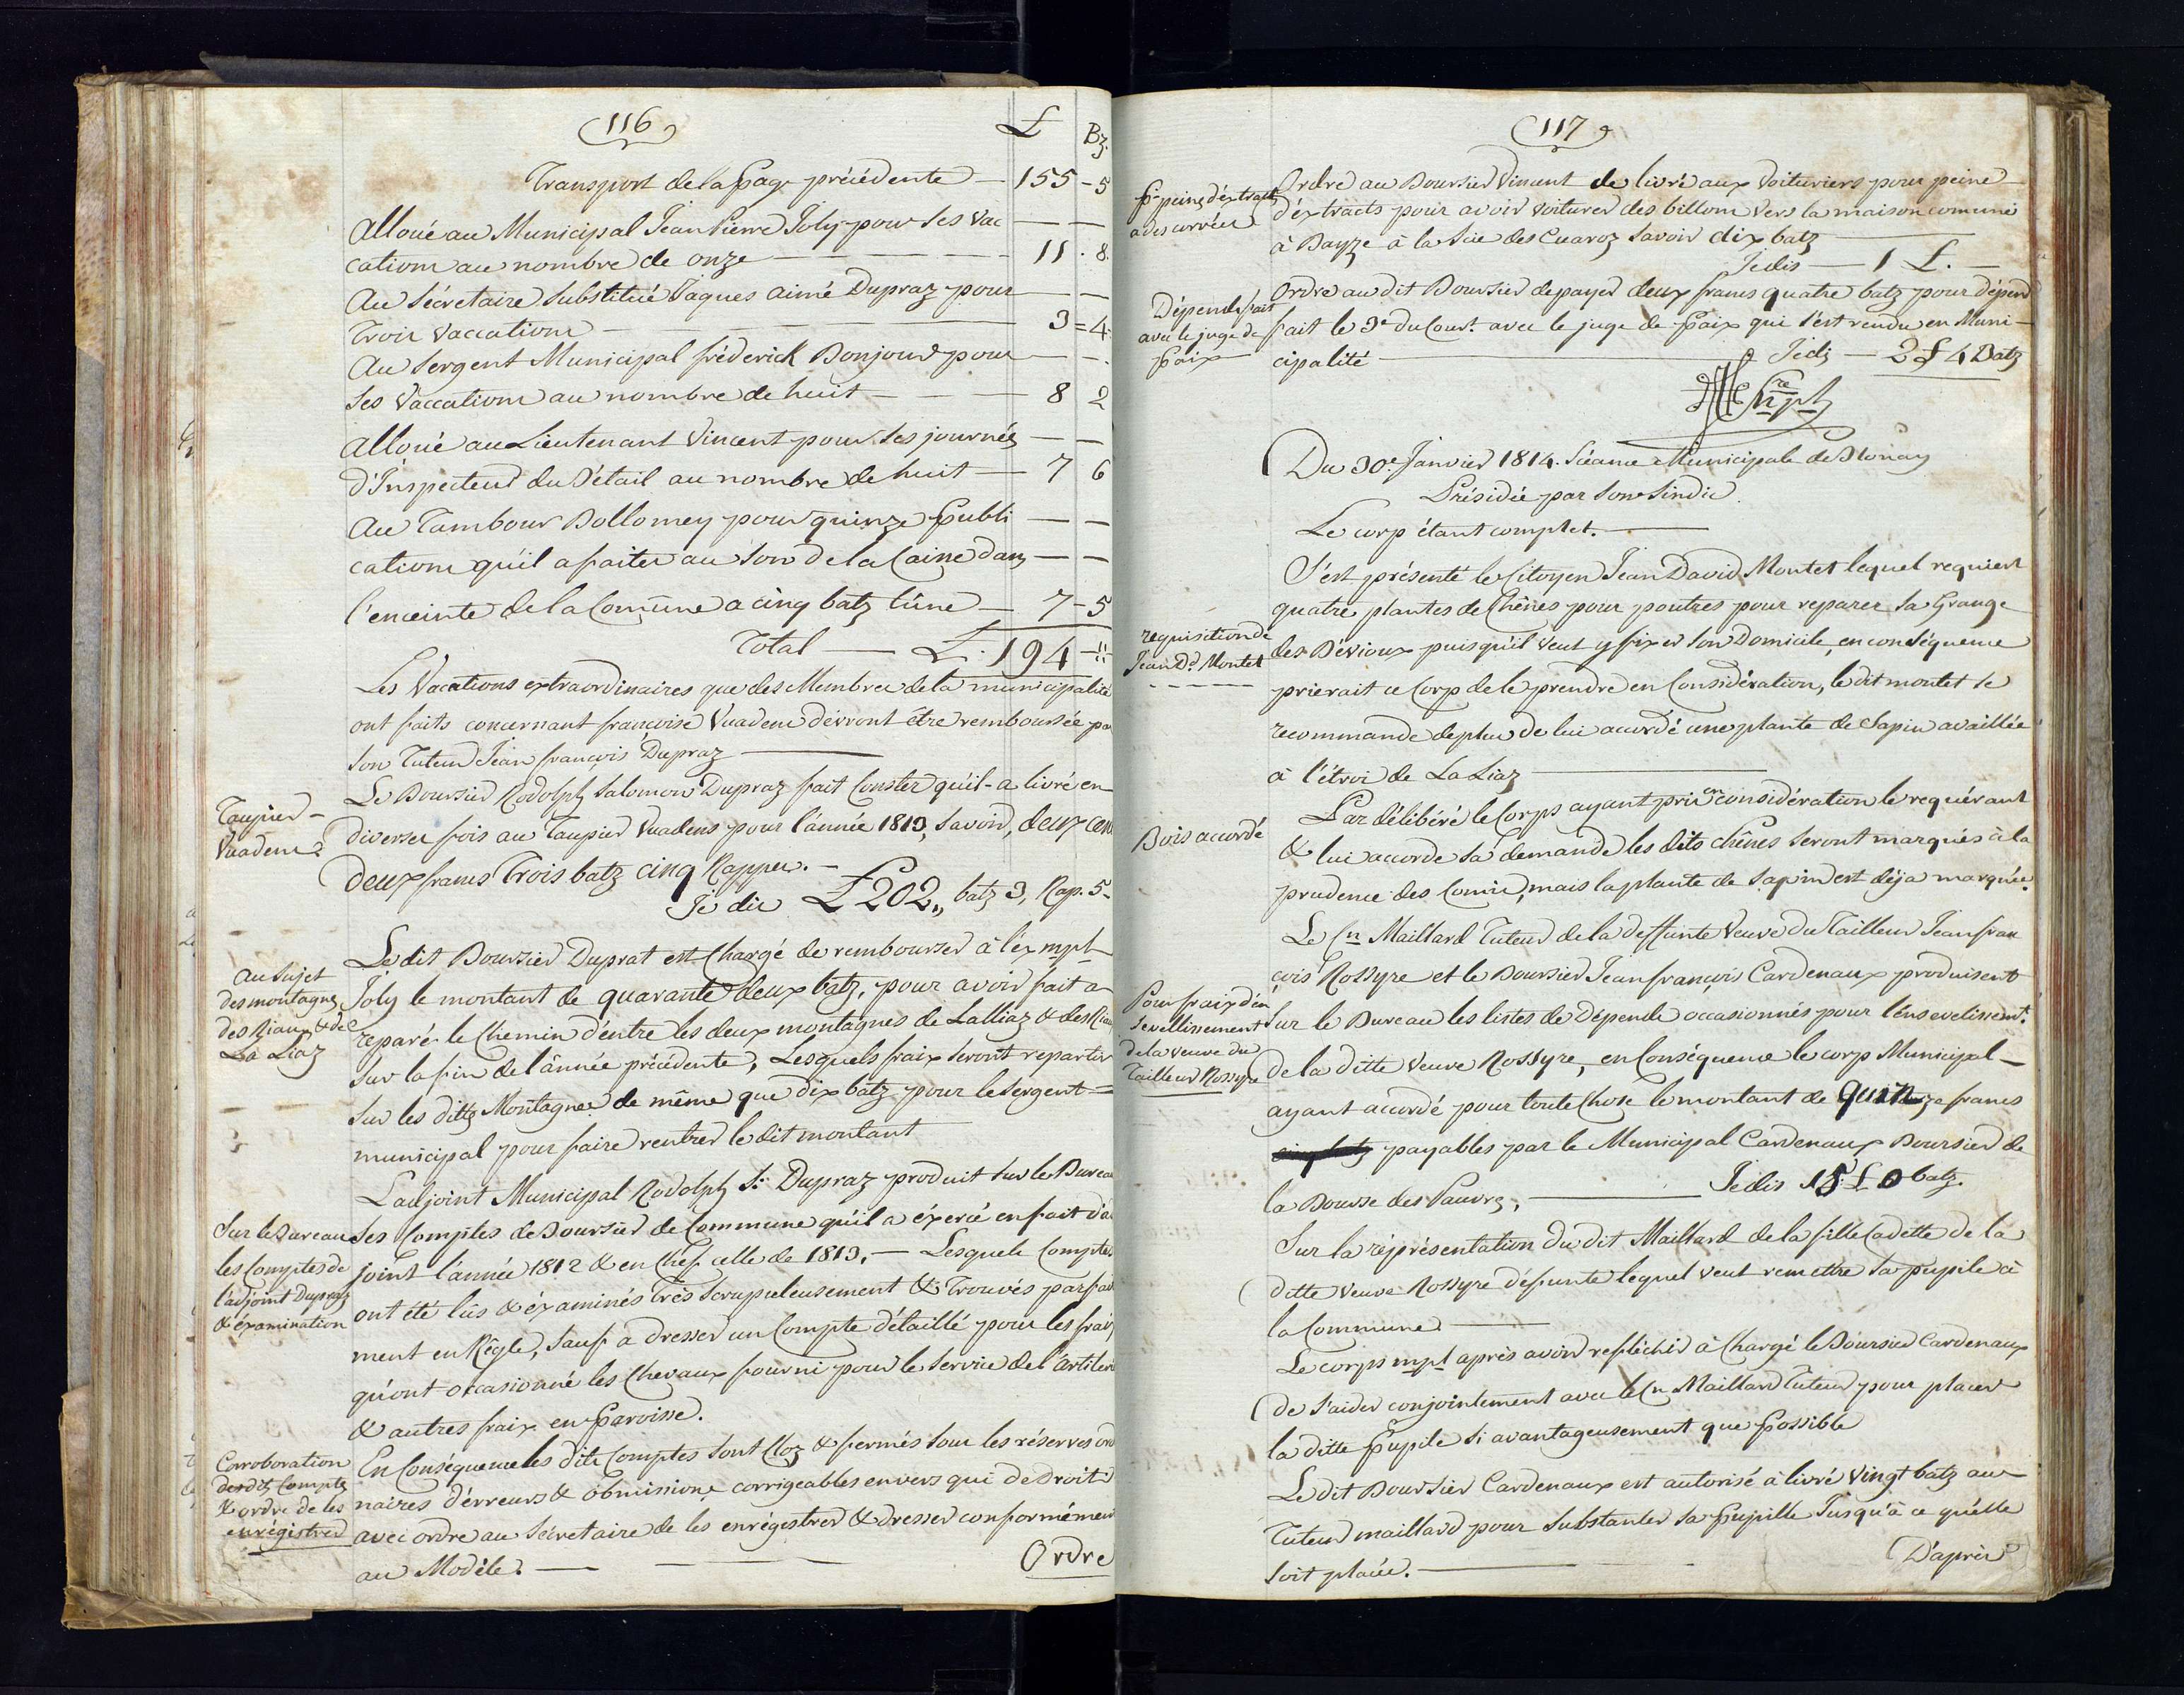 116
£ Bz.
Transport de la page précédente — 155 - 5
Alloué au Municipal Jean Pierre Joly pour ses vac — —
cations au nombre de onze — 11 . 8.
Au Sécretaire Substitué Jaques aimé Dupraz pour — —
trois vaccations — 3 = 4.
Au Sergent Municipal fréderick Bonjour pour — —
ses Vaccations au nombre de huit — 8 2
Alloué au Lieutenant Vincent pour ses journés — —
d'Inspecteur du Bétail au nombre de huit — 7 6
Au Tambour Dollomey pour quinze publi — —
cations qu'il a faites au son de la Caisse dans — —
l'enceinte de la Comune a cinq batz l'une — 7 - 5
Total — £. 194 - "
Les Vacations extraordinaires que des Membres de la municipalité
ont faits concernant françoise Vuadens devront être remboursée pa
son Tuteur Jean françois Dupraz —
Taupier
Vuadens
Le Boursier Rodolph Salomon Dupraz fait Conster qu'il a livré en
diverses fois au Taupier Vuadens pour l'année 1813, savoir, deux cent
deux francs trois batz cinq Rappes. —
Je dis £ 202,, batz 3, Rap. 5.
Au Sujet
des montagnes
des Riaux & de
La Liaz
Le dit Boursier Duprat est Chargé de rembourser à l'ex mpl
Joly le montant de quarante deux batz, pour avoir fait a
reparé le Chemin d'entre les deux montagnes de Lalliaz & des Riau
sur la fin de l'année précédente, Lesquels fraix seront repartis
sur les ditts Montagnes de même que dix batz pour le sergent =
municipal pour faire rentrer le dit montant
Sur le Bureau
les Comptes de
l'adjoint Dupraz
& éxamination
L'adjoint Municipal Rodolph S. Dupraz produit sur le Bureau
ses Comptes de Boursier de Commune qu'il a éxercé en fait d'a
joint l'année 1812 & en Chef celle de 1813. — Lesquels Comptes
ont été lûs & éxaminés très scrupuleusement & Trouvés parfai
ment en Règle, sauf a dresser un Compte détaillé pour les fraix
qu'ont occasionné les Chevaux fourni pour le service de l'artilleri
& autres fraix en Paroisse.
Corroboration
desdits Comptes
& ordre de les
enrégistrer
En Conséquence les dits Comptes sont Cloz & fermés sous les réserves ord
naires d'érreurs & obmissions corrigeables envers qui de Droit
avec ordre au Sécretaire de les enrégistrer & dresser conformémen
au Modèle. —
Ordre
117
pr peine d'éxtraits
a des corvées
Ordre au Boursier Vincent de livré aux voituriers pour peine
d'éxtracts pour avoir voiturer des billons vers la maison comune
à Bayze à la Scie des Cuaroz savoir dix batz —
Je dis — 1 £. —
Dépends fait
avec le juge de
Paix
Ordre au dit Boursier de payer deux francs quatre batz pour dépend
fait le 3e du Cour.t avec le juge de Paix qui s'est rendu en Muni-
cipalité — Je dis — 2 £ 4 Batz
Du 30e Janvier 1814. Séance Municipale de Blonay
Présidée par son Sindic.
Le corp étant complet. —
requisition de
Jean Dd Montet
S'est présenté le Citoyen Jean David Montet lequel requiert
quatre plantes de Chênes pour poutres pour reparer sa Grange
des Dévioux puisqu'il veut y fixer son Domicile, en conséquence
prierait ce Corp de le prendre en Considération, le dit montet se
recommande de plus de lui accordé une plante de Sapin availlée
à l'étroi de La Liaz —
Bois accordé
Par délibéré le Corps ayant pris en considération le requérant
& lui accorde sa demande les dits chênes seront marqués à la
prudence des Comis, mais la plante de sapin est déja marquée.
Pour fraix d'en
sevellissement
de la veuve du
Tailleur Rossyre
Le Cn Maillard Tuteur de la deffunte Veuve du Tailleur Jean fran
çois Rossyre et le Boursier Jean françois Cardenaux produisent
sur le Bureau les listes de Dépends occasionnés pour l'ensevelissemt.
de la ditte veuve Rossyre, en Conséquence le corp Municipal —
ayant accordé pour toute Chose le montant de Quinze francs
payables par le Municipal Cardenaux Boursier de
la Bourse des Pauvres, — Je dis 15 £ 0 batz.
Sur la réprésentation du dit Maillard de la fille Cadette de la
ditte veuve Rossyre défunte lequel veut remettre sa pupile à
la Commune. —
Le corps mpl après avoir refléchir à Chargé le Boursier Cardenaux
de s'aider conjointement avec le Cn Maillard Tuteur pour placer
la ditte Pupile si avantageusement que Possible
Le dit Boursier Cardenaux est autorisé à livré Vingt batz au
Tuteur maillard pour substanter sa Pupille Jusqu'à ce qu'elle
soit placée. —
D'après